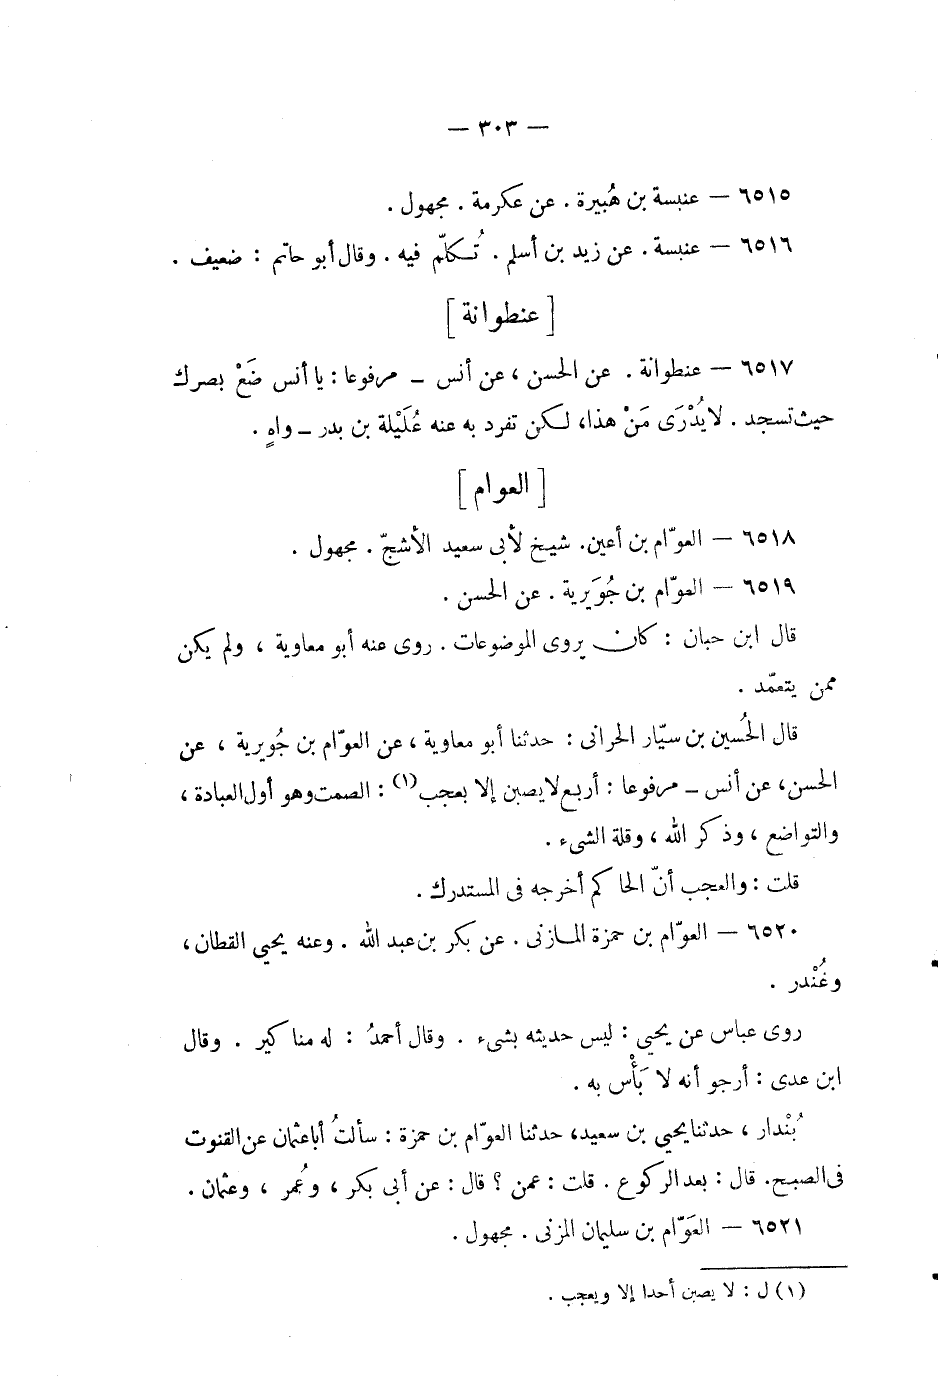 — ٣٠٣ —
٦٥١٥ — عنبسة بن هُبيرة . عن عكرمة . مجهول .
٦٥١٦ — عنبسة . عن زيد بن أسلم . تُكلّم فيه . وقال أبو حاتم : ضعيف .
[ عنطوانة ]
٦٥١٧ — عنطوانة . عن الحسن ، عن أنس ــ مرفوعا : يا أنس ضَعْ بصرك
حيث تسجد . لا يُدْرَى مَنْ هذا، لكن تفرد به عنه عُلَيْلة بن بدر ــ واهٍ .
[ العوام ]
٦٥١٨ — العوّام بن أعين. شيخ لأبى سعيد الأشجّ . مجهول .
٦٥١٩ — العوّام بن جُوَيرية . عن الحسن .
قال ابن حبان : كان يروى الموضوعات . روى عنه أبو معاوية ، ولم يكن
ممن يتعمّد .
قال الحُسين بن سيّار الحرانى : حدثنا أبو معاوية ، عن العوّام بن جُويرية ، عن
الحسن، عن أنس ــ مرفوعا : أربع لا يصبن إلا بعجب(١) : الصمت وهو أول العبادة ،
والتواضع ، وذكر الله ، وقلة الشىء .
قلت : والعجب أنّ الحاكم أخرجه فى المستدرك .
٦٥٢٠ — العوّام بن حمزة المازنى . عن بكر بن عبد الله . وعنه يحيى القطان ،
وغُنْدر .
روى عباس عن يحيى : ليس حديثه بشىء . وقال أحمدُ : له مناكير . وقال
ابن عدى : أرجو أنه لا بَأْس به .
بُنْدار ، حدثنا يحيى بن سعيد، حدثنا العوّام بن حمزة : سألتُ أبا عثمان عن القنوت
فى الصبح. قال : بعد الركوع . قلت : عمن ؟ قال : عن أبى بكر ، وعُمر ، وعثمان .
٦٥٢١ — العَوّام بن سليمان المزنى . مجهول .
(١) ل : لا يصبن أحدا إلا وبعجب .